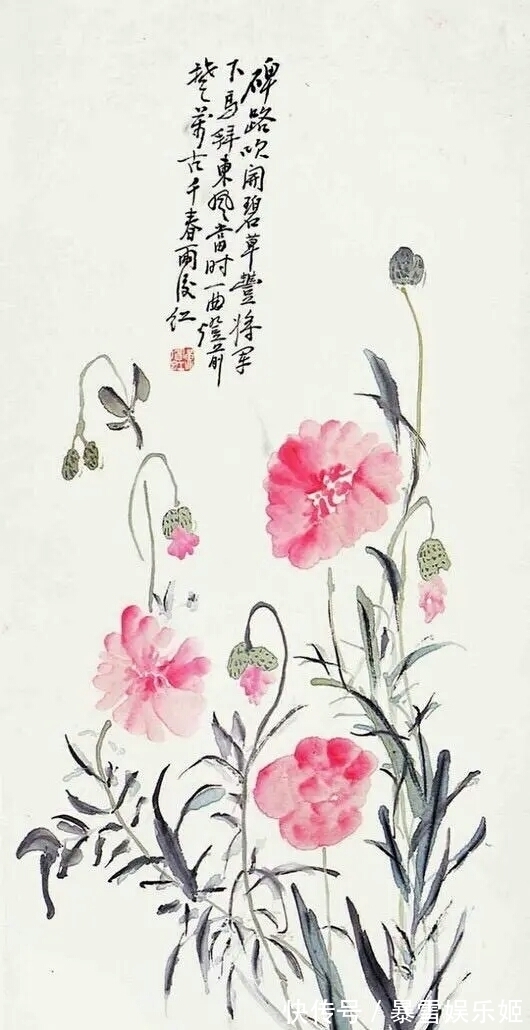 碑路吹開碧草豐將軍
下馬拜東風當时一曲燈前
楚萬古千春雨後紅
快传号/暴雪娱乐姬